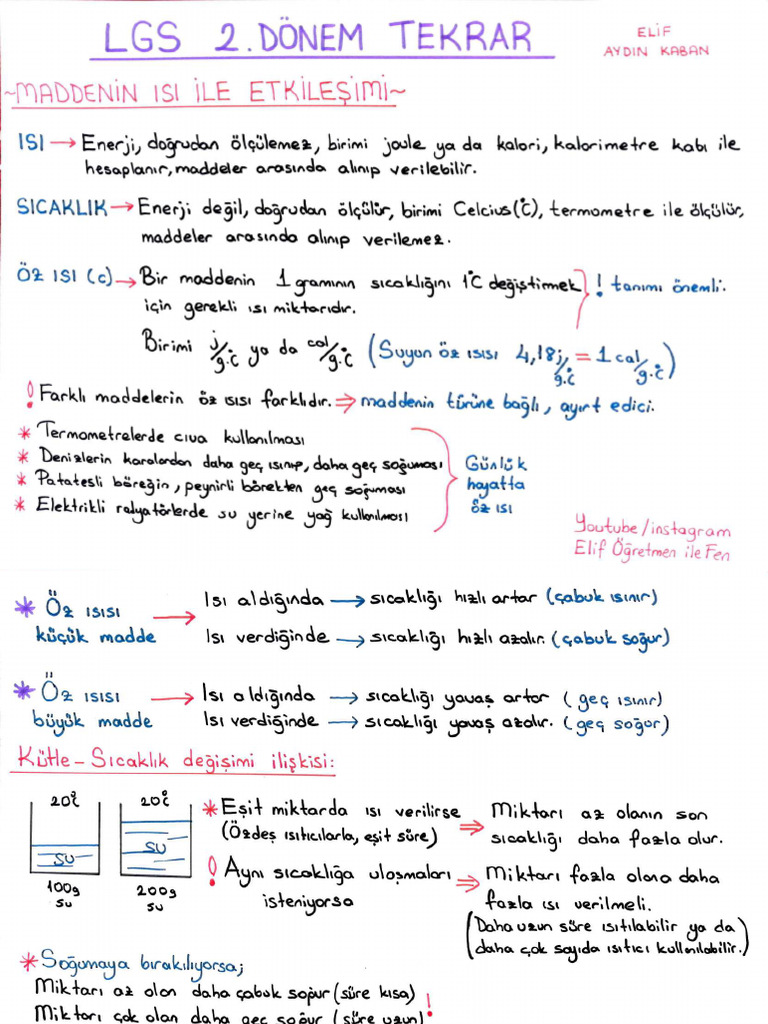 LGS 2. DÖNEM TEKRAR
ELİF
AYDIN KABAN
~MADDENİN ISI İLE ETKİLEŞİMİ~
ISI → Enerji, doğrudan ölçülemez, birimi joule ya da kalori, kalorimetre kabı ile
hesaplanır, maddeler arasında alınıp verilebilir.
SICAKLIK → Enerji değil, doğrudan ölçülür, birimi Celcius(°C), termometre ile ölçülür,
maddeler arasında alınıp verilemez.
ÖZ ISI (c) → Bir maddenin 1 gramının sıcaklığını 1°C değiştirmek
için gerekli ısı miktarıdır.
! tanımı önemli.
Birimi j/g.°C ya da cal/g.°C (Suyun öz ısısı 4,18j/g.°C = 1 cal/g.°C)
! Farklı maddelerin öz ısısı farklıdır. ⇒ maddenin türüne bağlı, ayırt edici.
* Termometrelerde cıva kullanılması
* Denizlerin karalardan daha geç ısınıp, daha geç soğuması
* Patatesli böreğin, peynirli börekten geç soğuması
* Elektrikli radyatörlerde su yerine yağ kullanılması
Günlük
hayatta
öz ısı
Youtube/instagram
Elif Öğretmen ile Fen
* Öz ısısı
küçük madde
→ Isı aldığında → sıcaklığı hızlı artar (çabuk ısınır)
Isı verdiğinde → sıcaklığı hızlı azalır. (çabuk soğur)
* Öz ısısı
büyük madde
→ Isı aldığında → sıcaklığı yavaş artar (geç ısınır)
Isı verdiğinde → sıcaklığı yavaş azalır. (geç soğur)
Kütle - Sıcaklık değişimi ilişkisi:
20°C
su
100g
su
20°C
su
200g
su
* Eşit miktarda ısı verilirse
(Özdeş ısıtıcılarla, eşit süre)
⇒ Miktarı az olanın son
sıcaklığı daha fazla olur.
! Aynı sıcaklığa ulaşmaları
isteniyorsa
⇒ Miktarı fazla olana daha
fazla ısı verilmeli.
(Daha uzun süre ısıtılabilir ya da
daha çok sayıda ısıtıcı kullanılabilir.)
* Soğumaya bırakılıyorsa;
Miktarı az olan daha çabuk soğur (süre kısa) !
Miktarı çok olan daha geç soğur (süre uzun)